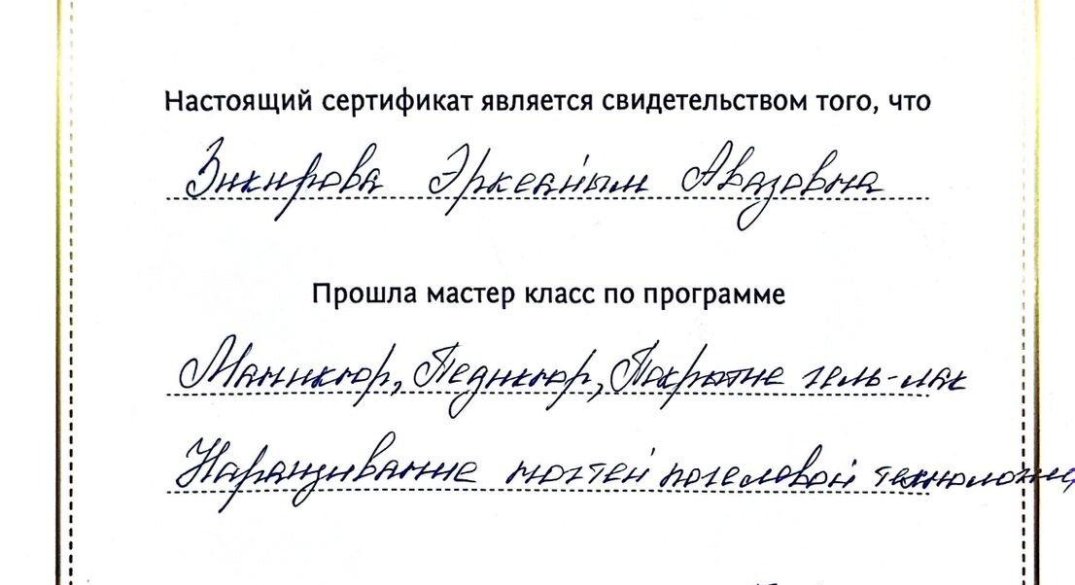 Настоящий сертификат является свидетельством того, что
Зикирова Эркеайым Авазовна
Прошла мастер класс по программе
Маникюр, Педикюр, Покрытие гель-лак
Наращивание ногтей по гелевой технологии